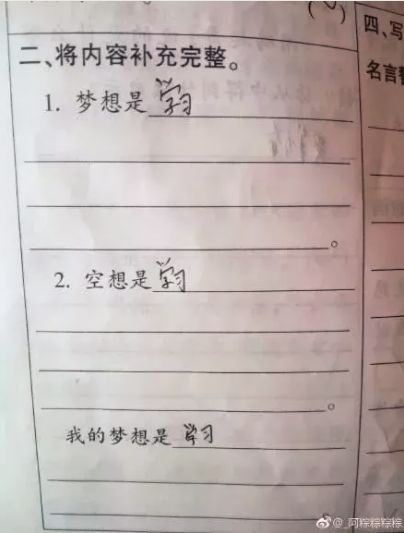 四、写
二、将内容补充完整。
名言警
1. 梦想是学习
。
2. 空想是学习
。
我的梦想是学习
@_阿粽粽粽粽